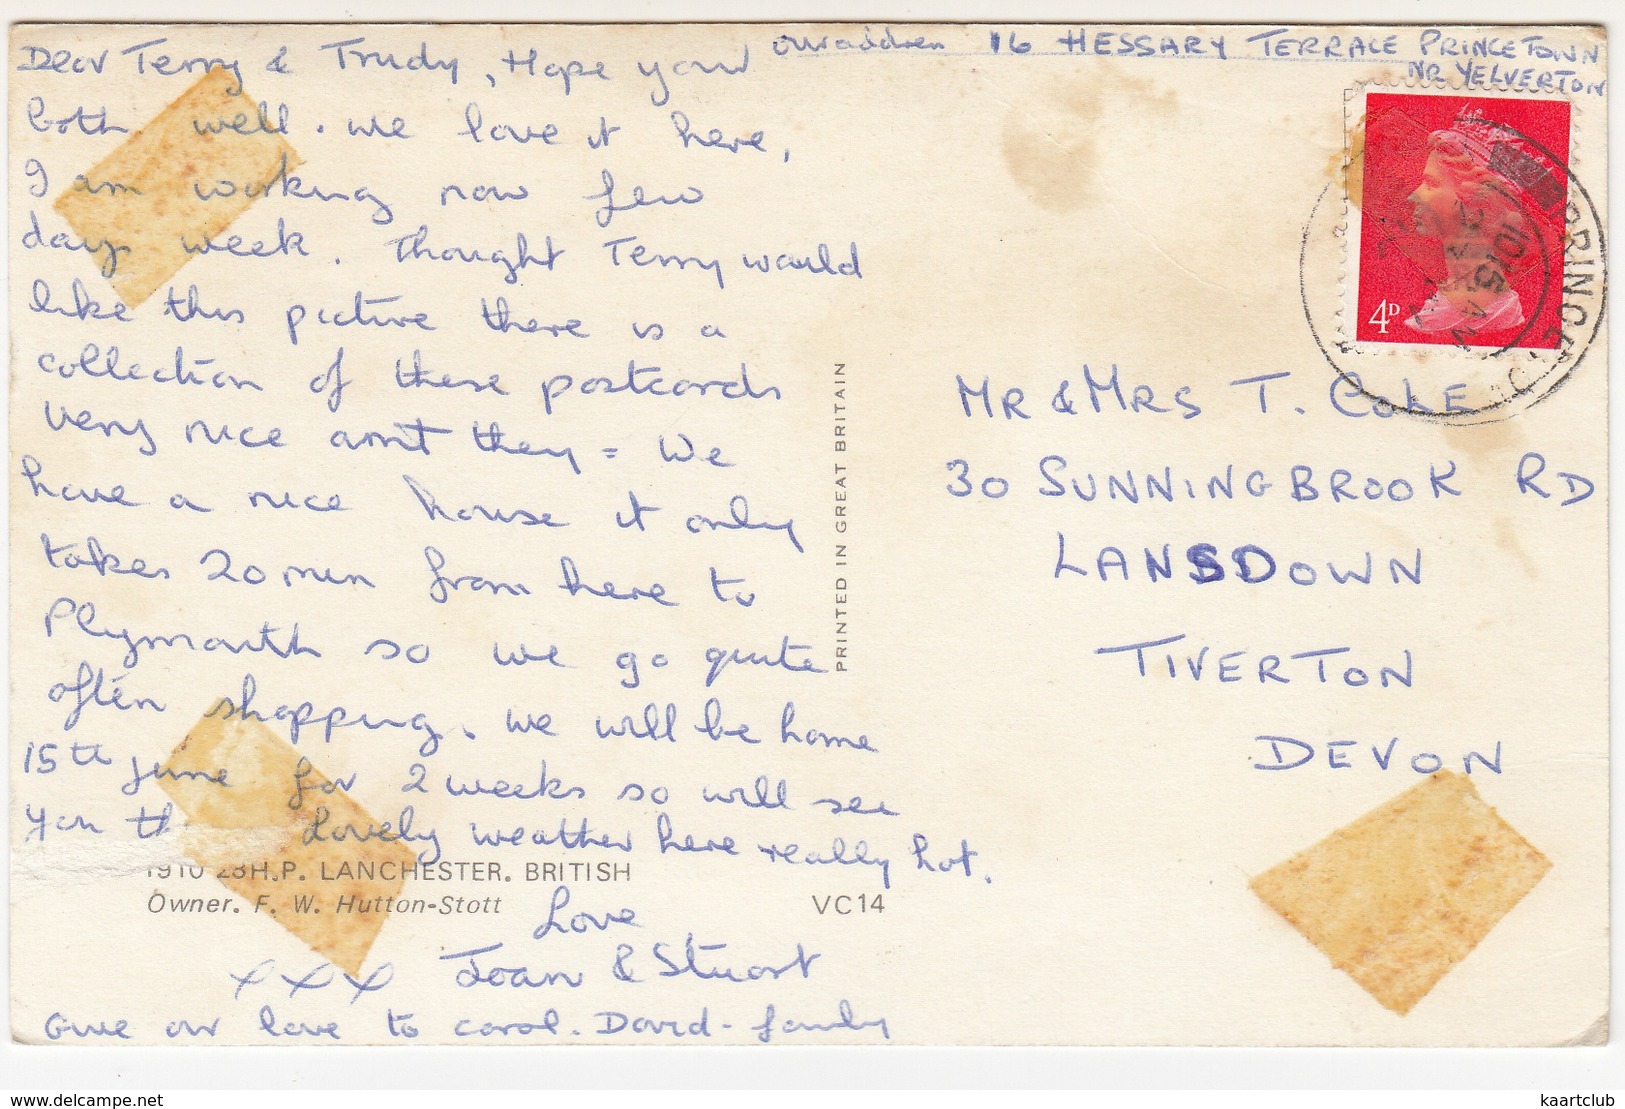 Dear Terry & Trudy, Hope your
both well. we love it here,
I am working now few
days week. Thought Terry would
like this picture there is a
collection of these postcards
very nice arnt they = We
have a nice house it only
takes 20 min from here to
Plymouth so we go quite
often shopping. we will be home
15th june for 2 weeks so will see
you Lovely weather here really hot.
Love
xxx Joan & Stuart
Give our love to carol. David - family
1910 28H.P. LANCHESTER. BRITISH
Owner. F. W. Hutton-Stott
VC14
PRINTED IN GREAT BRITAIN
our address 16 HESSARY TERRACE PRINCETOWN
NR YELVERTON
4D
PRINCETOWN
1015 AM
MR & MRS T. COLE
30 SUNNINGBROOK RD
LANSDOWN
TIVERTON
DEVON
www.delcampe.net
kaartclub